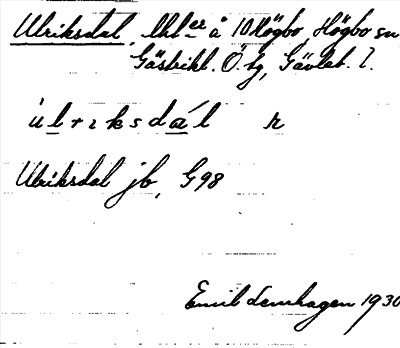 Ulriksdal, lht er å 10 Högbo, Högbo sn
Gästrikl. Ö. tg, Gävleb. l.
u̇ l r ı k s d a̲ ́ l n
Ulriksdal jb, G98
Emil Lenhagen 1930